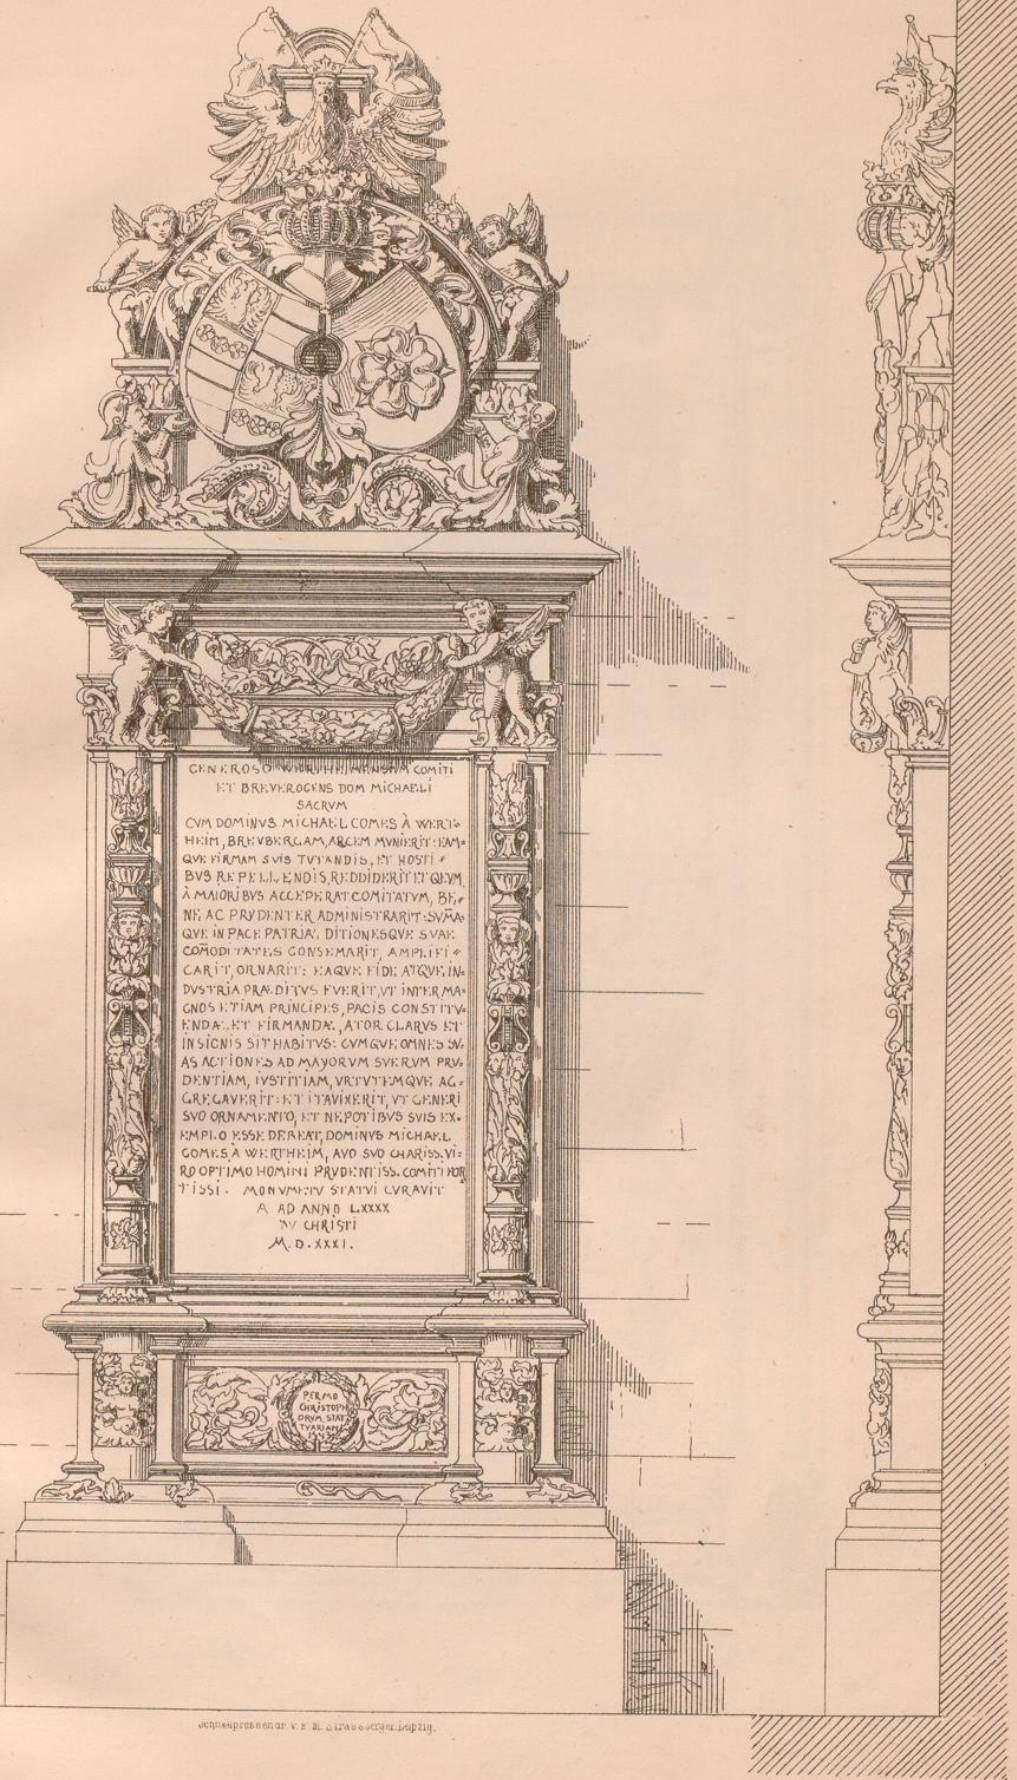 GENEROSO WERTHEIMENSIUM COMITI
ET BREVEROGENS DOM MICHAELI
SACRVM
CVM DOMINVS MICHAEL COMES À WERT=
HEIM, BREVBERGAM, ARCEM MVNIERIT: EAM=
QVE FIRMAM SVIS TVTANDIS, ET HOSTI=
BVS REPELLENDIS, REDDIDERIT ET QEVM,
À MAIORIBVS ACCEPERAT COMITATVM, BE=
NE, AC PRVDENTER ADMINISTRARIT: SVMA=
QVE IN PACE PATRIA, DITIONESQVE SVAE
COMODITATES CONSEMARIT, AMPLIFI=
CARIT, ORNARIT: EAQVE FIDE ATQVE, IN=
DVSTRIA PRÆDITVS FVERIT, VT INTER MA=
GNOS ETIAM PRINCIPES, PACIS CONSTITV=
ENDÆ. ET FIRMANDÆ, ATOR CLARVS ET
INSIGNIS SIT HABITVS: CVMQVE OMNES SV=
AS ACTIONES AD MAYORVM SVERVM PRV=
DENTIAM, IVSTITIAM, VRTVTEMQVE AG=
GREGAVERIT: ET ITAVIXERIT, VT GENERI
SVO ORNAMENTO, ET NEPOTIBVS SVIS EX=
EMPLO ESSE DEBEAT, DOMINVS MICHAEL
COMES À WERTHEIM, AVO SVO CHARISS. VI=
RO OPTIMO HOMINI PRVDENTISS. COMITI FOR
TISSI. MONVMETV STATVI CVRAVIT
A AD ANNO LXXXX
CHRISTI
M. D. XXXI.
PER MO
CHRISTOPH
ORVM STAT
TVARIAM
Schnellpressendr. v. F. M. Strassberger, Leipzig.